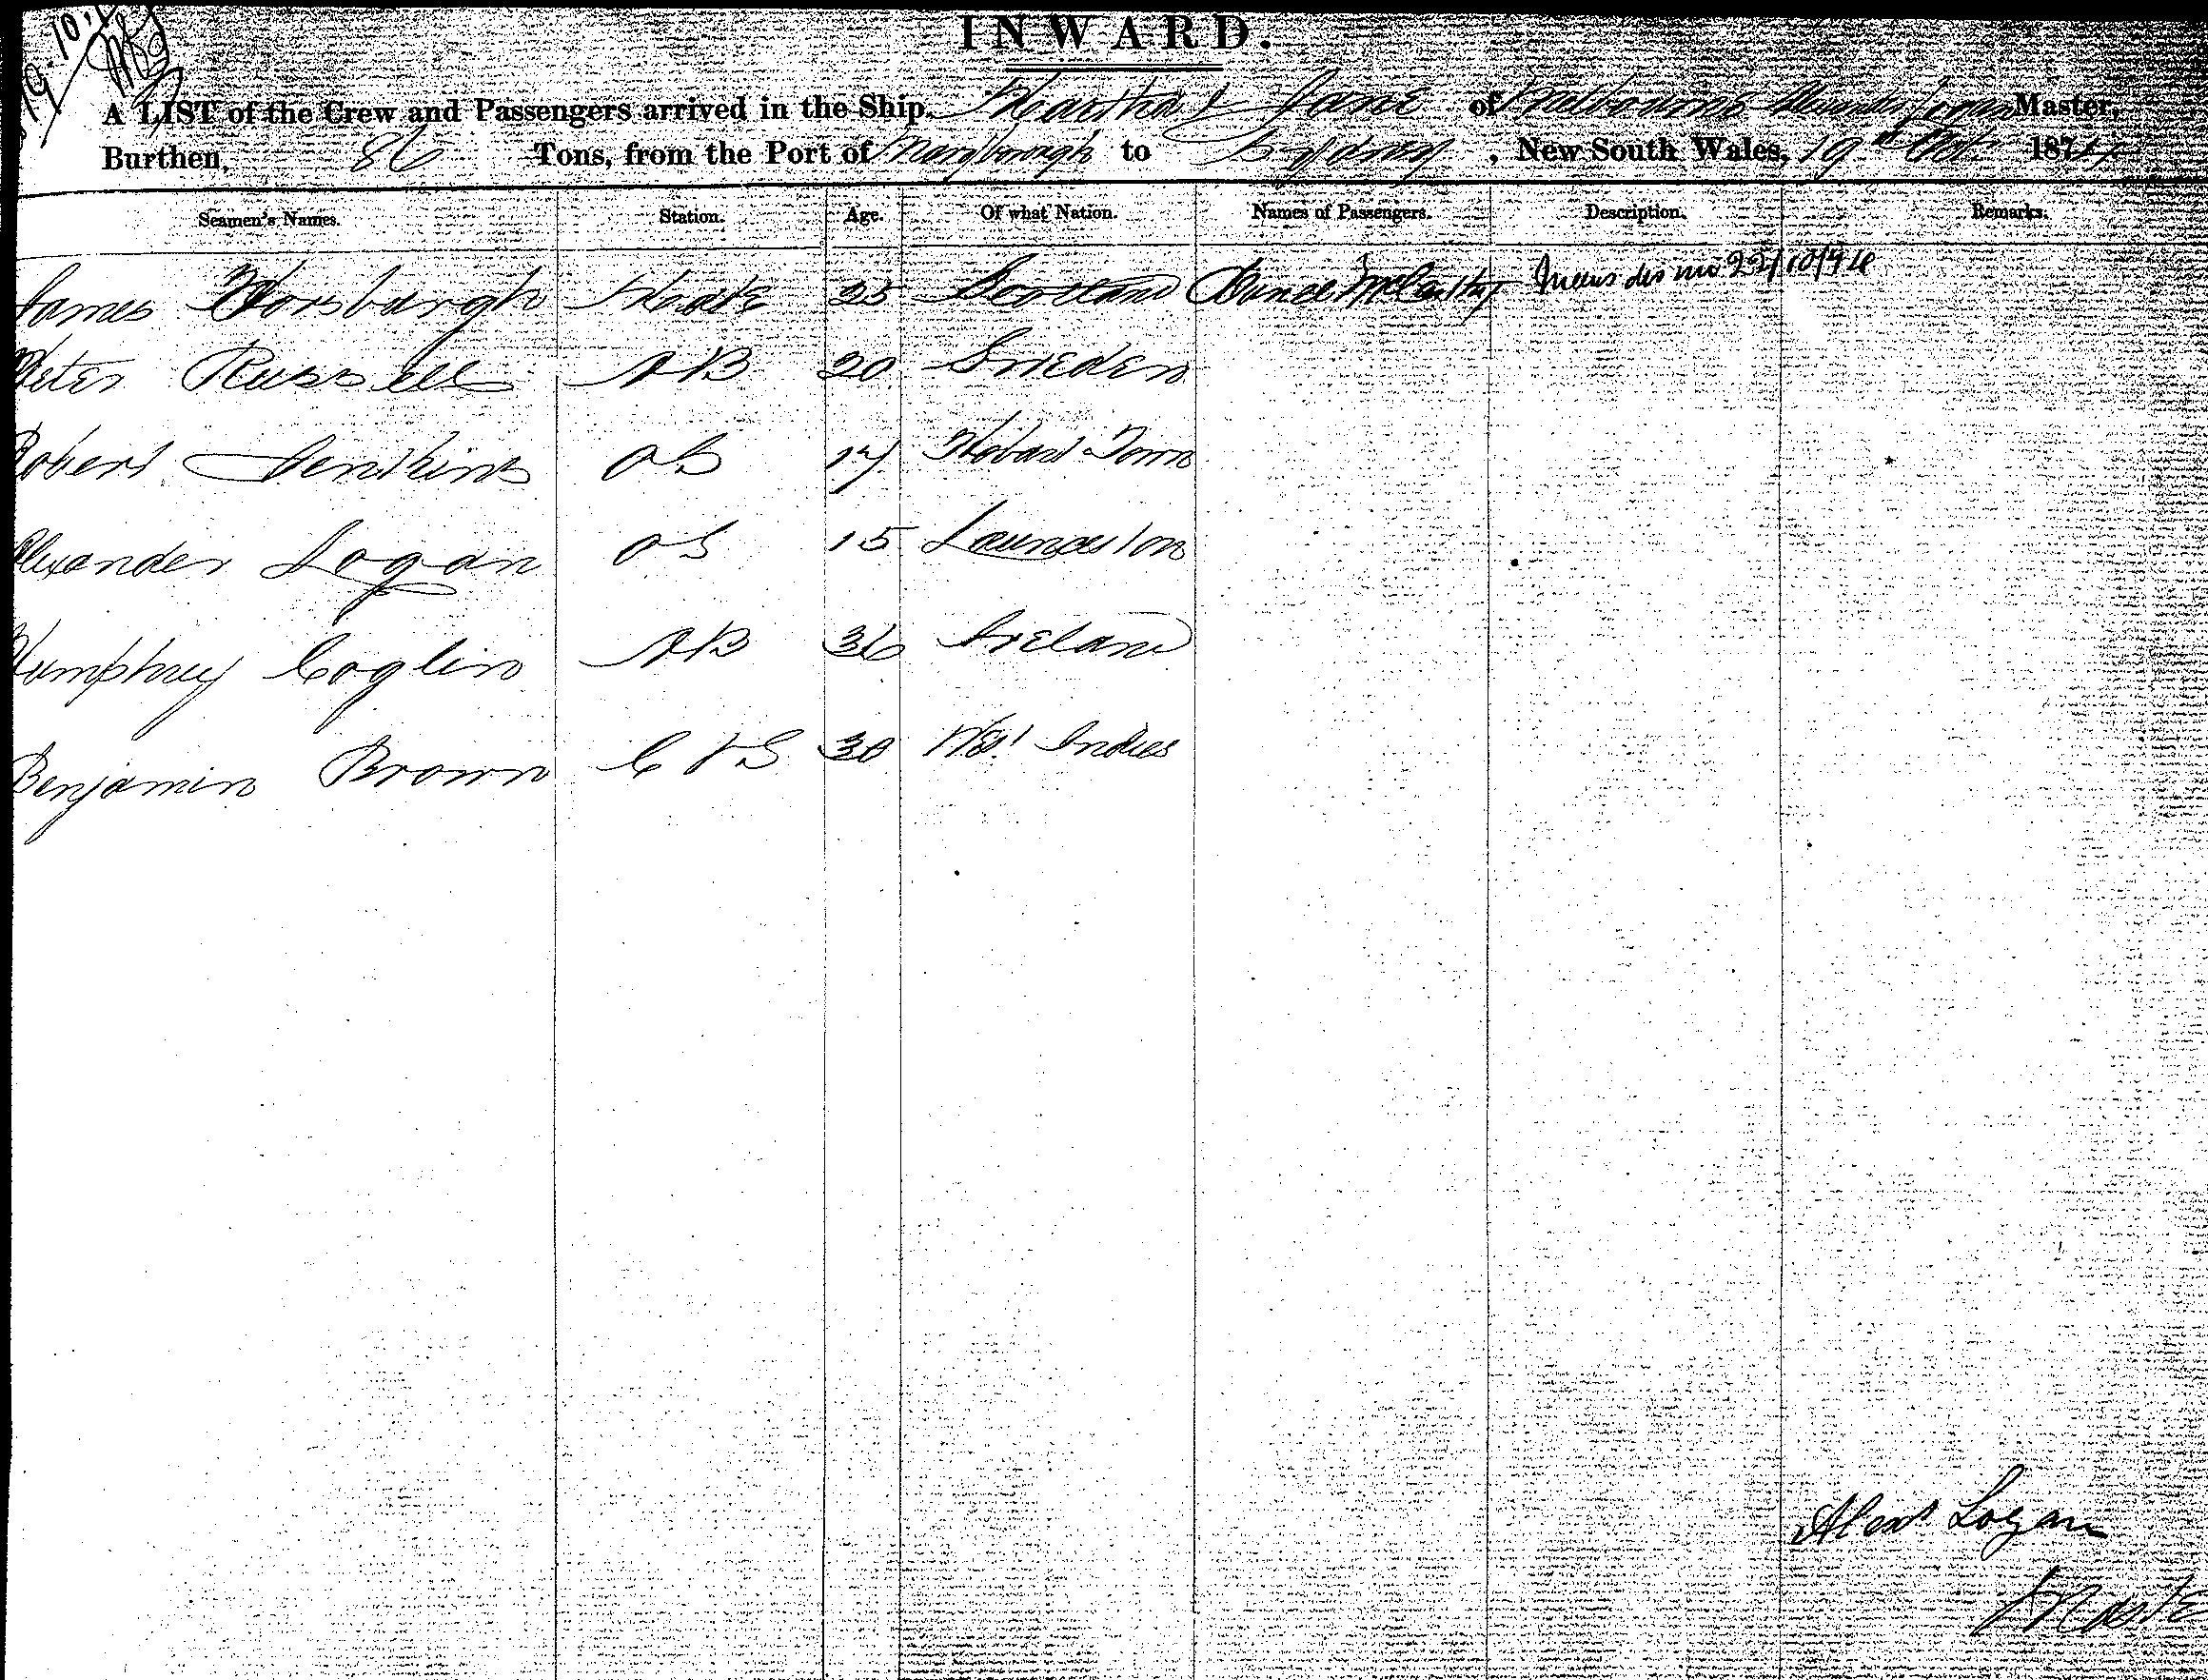 19.10.
INWARD.
A LIST of the Crew and Passengers arrived in the Ship, Martha & Jane of Melbourne Alexander Logan Master,
Burthen, 86 Tons, from the Port of Maryborough to Sydney, New South Wales, 19th Oct 1874
Seamen's Names. Station. Age. Of what Nation. Names of Passengers. Description. Remarks.
James Horsburgh Mate 25 Scotland McCarthy 22/10/74
Peter Russell AB 20 Sweden
Robert Jenkins OS 17 Hobart Town
Alexander Logan OS 15 Launceston
Humphrey Coglin AB 36 Ireland
Benjamin Brown C & S 30 West Indies
Alexr Logan
Maste